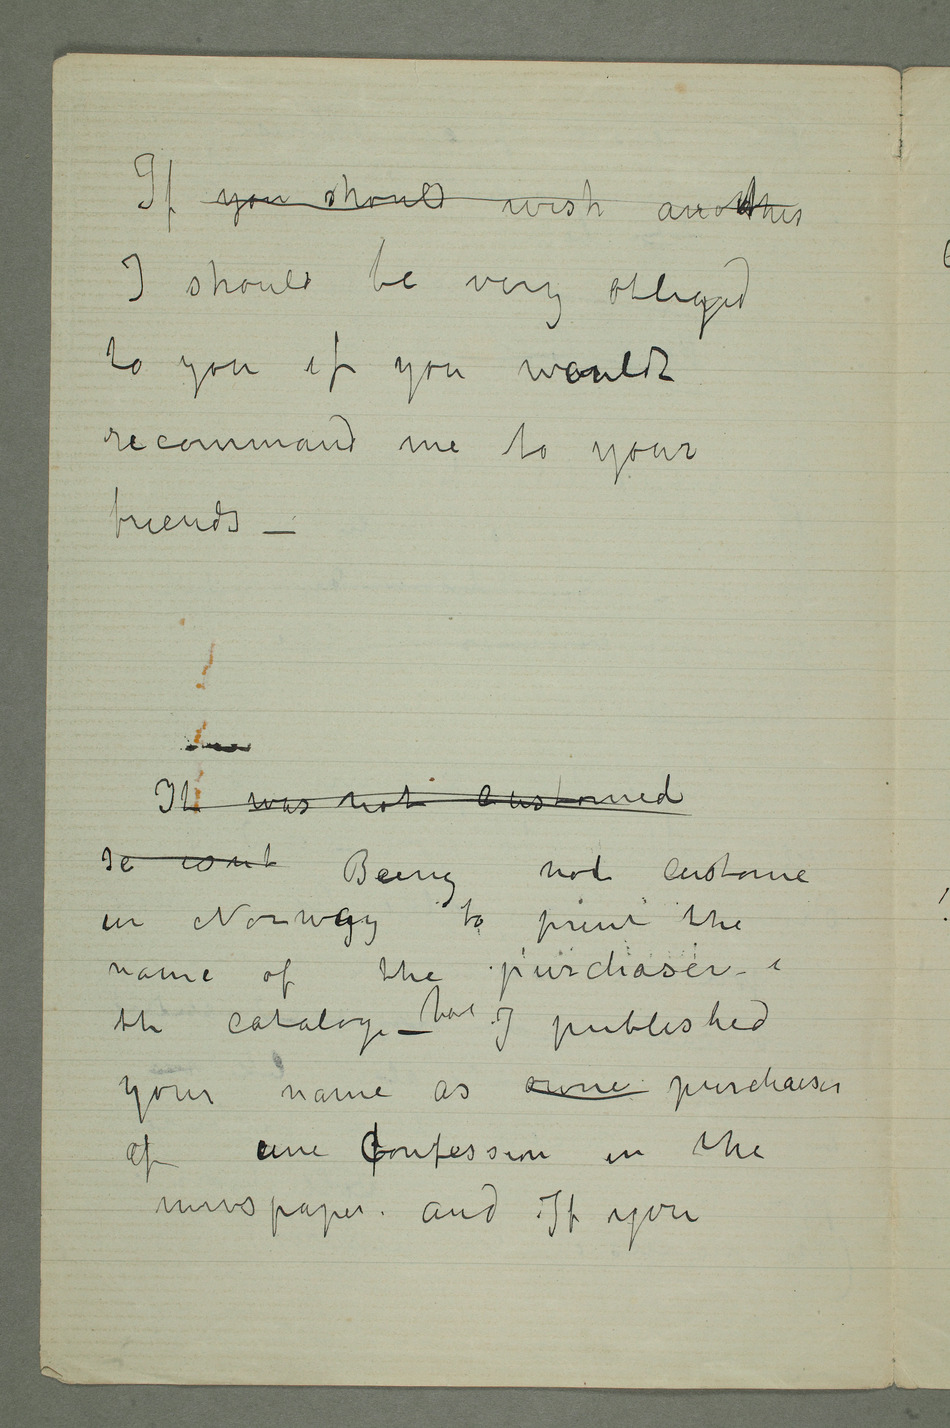 If you should wish another
I should be very obliged
to you if you would
recommand me to your
friends —
It was not customed
se isnt Being not custome
in Norway to print the
name of the purchaser i
th catalog — have I published
your name as owne purchaser
of une Confession in the
newspaper. and If you